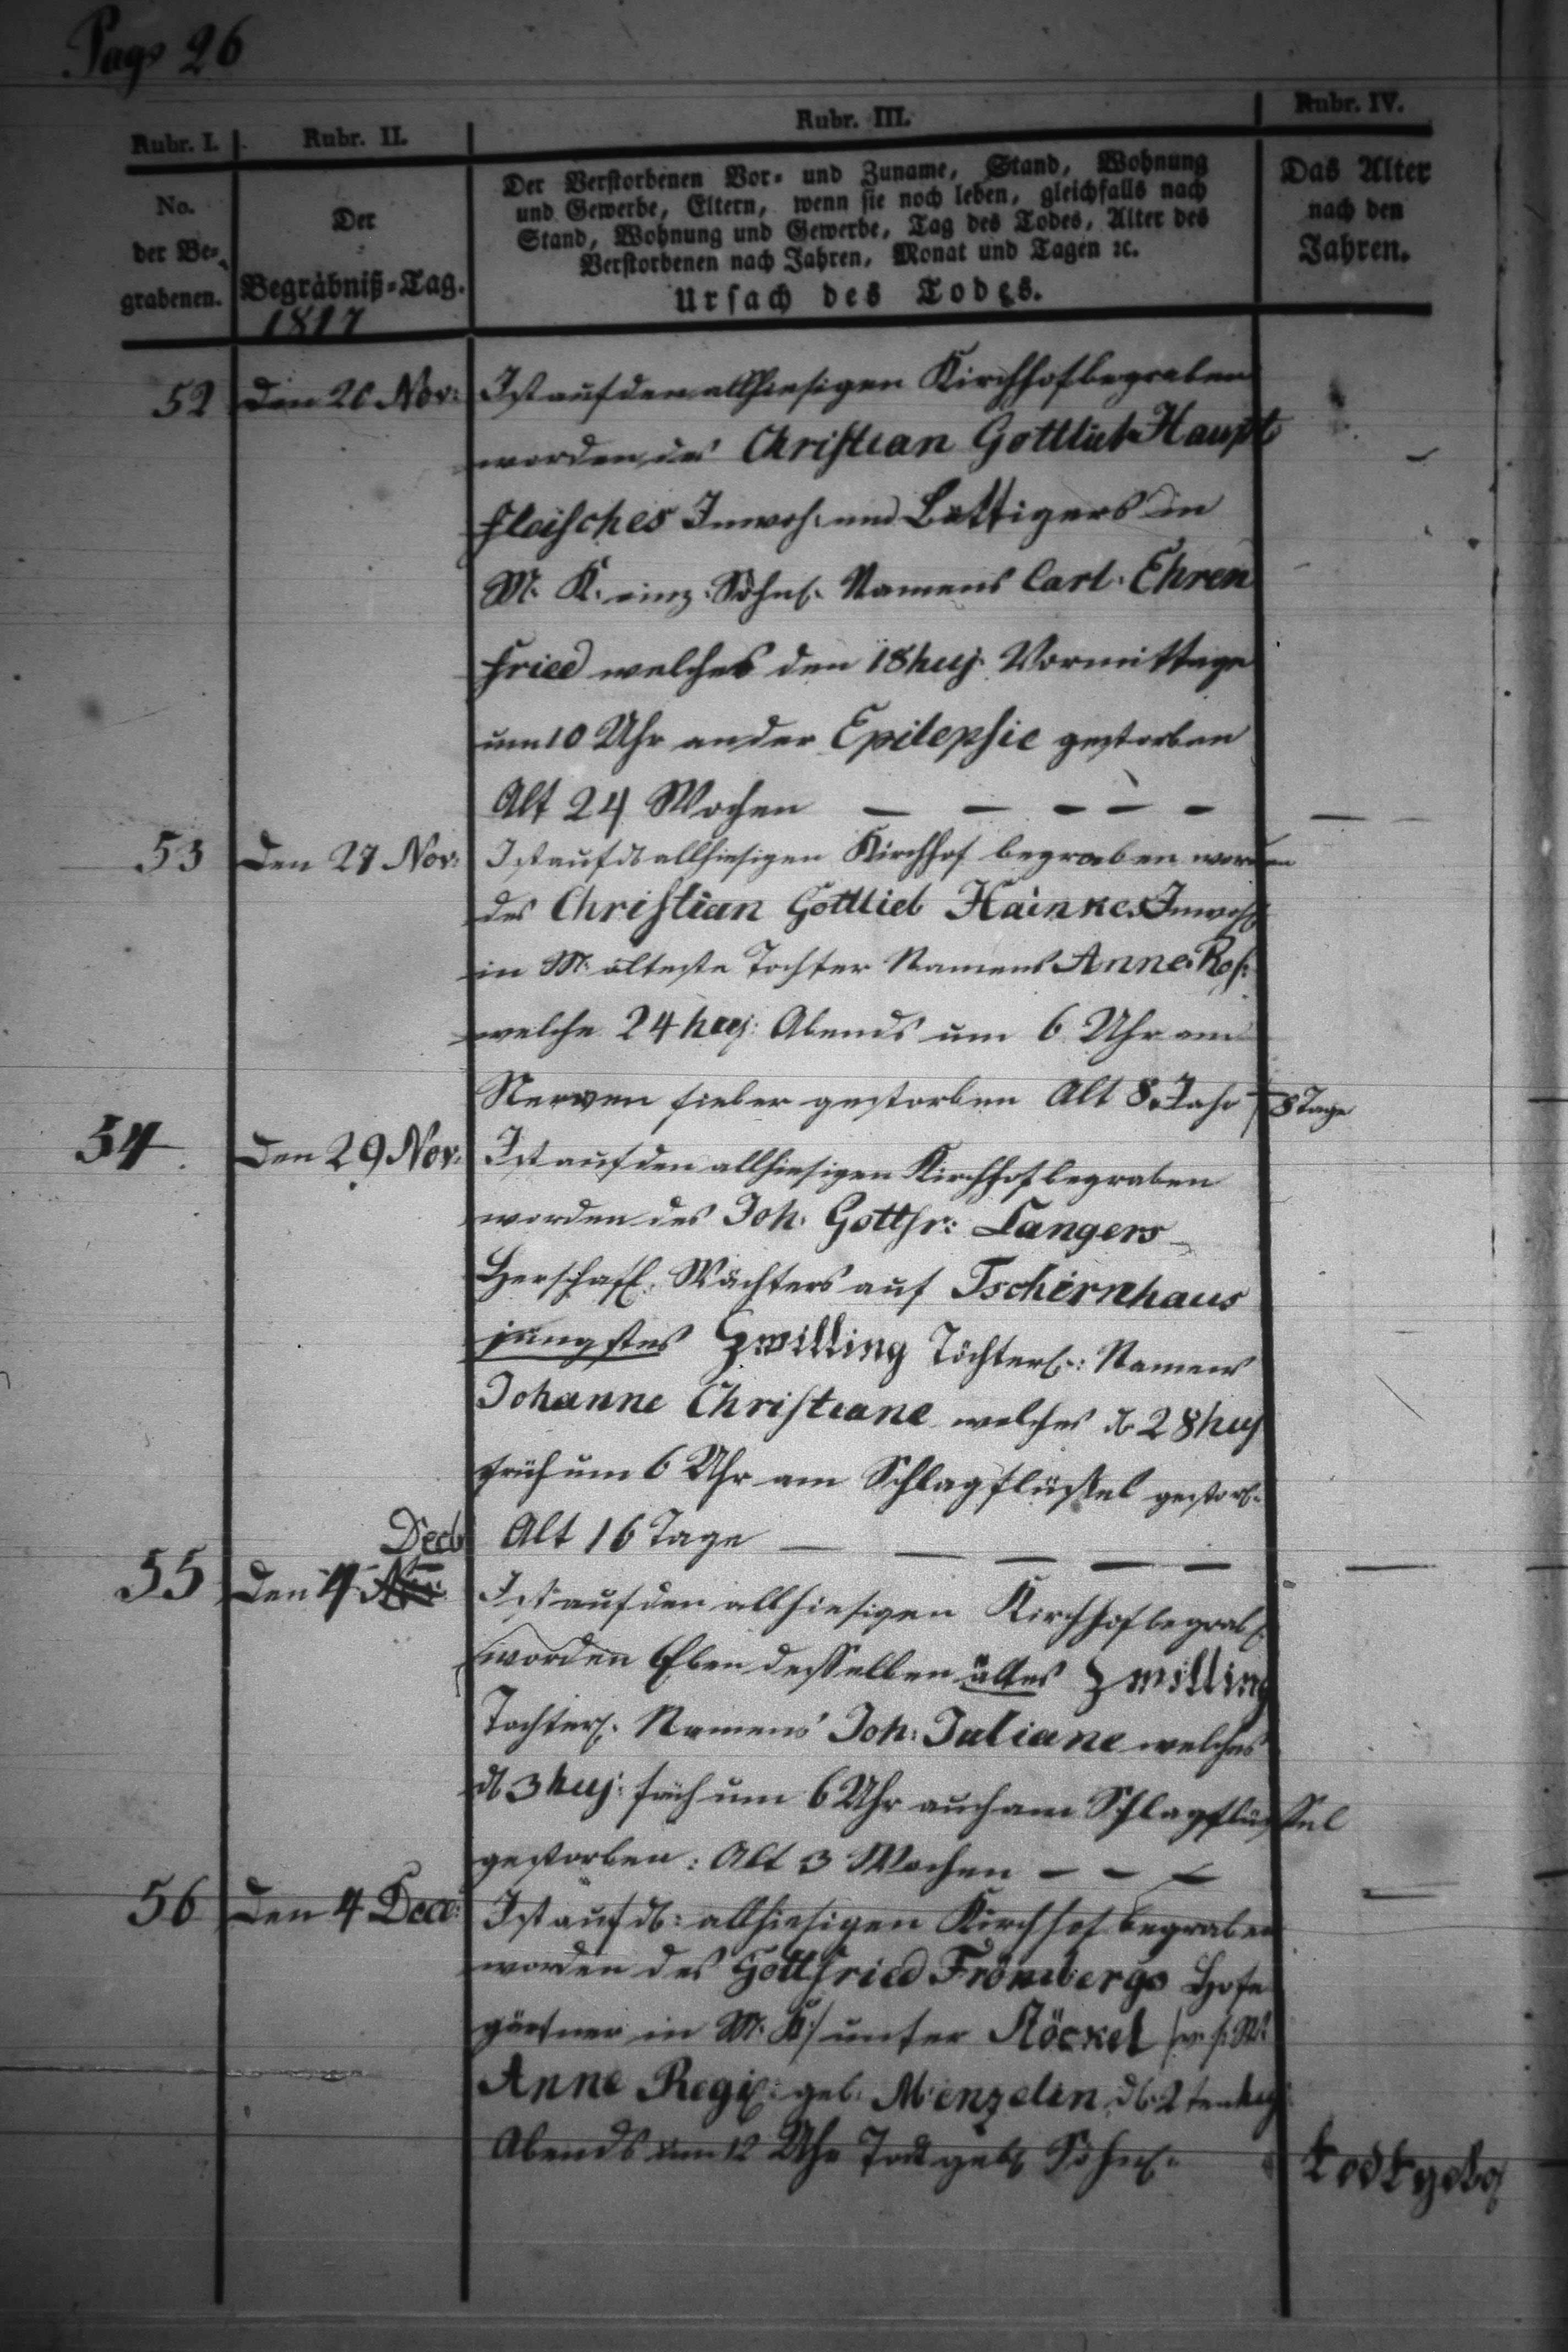 Pag. 26
Rubr. I. Rubr. II. Rubr. III. Rubr. IV.
No.
der Be-
grabenen.
Der
Begräbniß-Tag.
1817
Der Verstorbenen Vor- und Zuname, Stand, Wohnung
und Gewerbe, Eltern, wenn sie noch leben, gleichfalls nach
Stand, Wohnung und Gewerbe, Tag des Todes, Alter des
Verstorbenen nach Jahren, Monat und Tagen ꝛc.
Ursach des Todes.
Das Alter
nach den
Jahren.
52 Den 20 Nov: Ist auf den allhiesigen Kirchhof begraben
worden des Christian Gottlieb Haupt
fleisches Inwoh: und Böttigers in
M. K. einz: Söhnl. Namens Carl Ehren
fried welches den 18 huj. Vormittage
um 10 Uhr an der Epilepsie gestorben
Alt 24 Wochen — — — — —
53 Den 27 Nov: Ist auf d. allhiesigen Kirchhof begraben worden
des Christian Gottlieb Hainkes Inwoh
in M. älteste Tochter Namens Anne Ros:
welche 24 huj: Abends um 6 Uhr am
Nerven fieber gestorben Alt 8 Jahr 8 Tage
54. Den 29 Nov: Ist auf den allhiesigen Kirchhof begraben
worden des Joh. Gottfr: Langers
Herschaftl. Wächters auf Tschirnhaus
jüngstes Zwilling Töchterl: Namens
Johanne Christiane welches d. 28 huj
früh um 6 Uhr am Schlagflüßel gestorb:
Alt 16 Tage — — — — —
55 Den 4 Nov: Decb Ist auf den allhiesigen Kirchhof begrab:
worden Eben desselben altes Zwilling
Tochterl. Namens Joh: Juliane welches
d. 3 huj: früh um 6 Uhr auch am Schlagflüssel
gestorben: Alt 3 Wochen — — —
56 Den 4 Dec: Ist auf d: allhiesigen Kirchhof begraben
worden des Gottfried Frömbergs Hofe
gärtner in M. K/ unter Stöckel
Anne Regi: geb. Menzelin d. 2ten huj:
Abends um 12 Uhr Todtgeb Söhnl. todtgeb